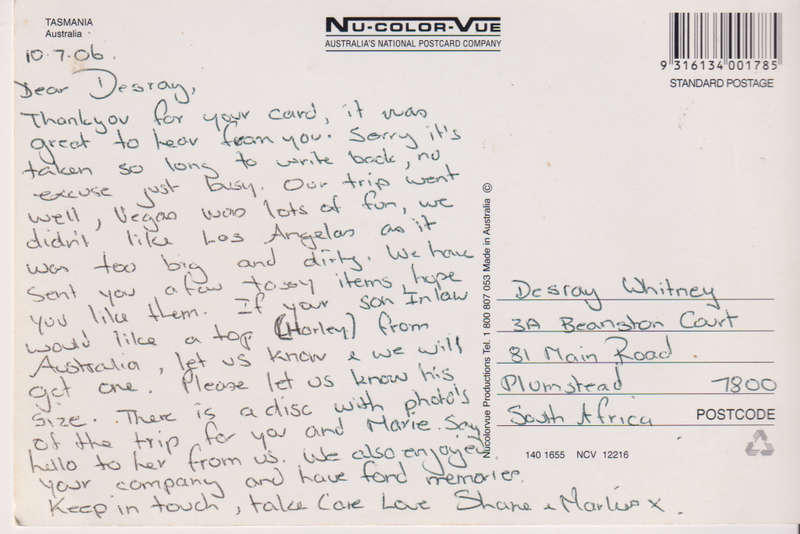 TASMANIA
Australia
NU-COLOR-VUE
AUSTRALIA'S NATIONAL POSTCARD COMPANY
9 316134 001785
STANDARD POSTAGE
10.7.06.
Dear Desray,
Thankyou for your card, it was
great to hear from you. Sorry it's
taken so long to write back, no
excuse just busy. Our trip went
well, Vegas was lots of fun, we
didn't like Los Angelas as it
was too big and dirty. We have
sent you a few tassy items, hope
you like them. If your son Inlaw
would like a top (Harley) from
Australia, let us know & we will
get one. Please let us know his
size. There is a disc with photo's
of the trip for you and Marie. Say
hello to her from us. We also enjoyed
your company and have fond memories.
Keep in touch, take care Love Shane & x.
Nucolorvue Productions Tel. 1 800 807 053 Made in Australia ©
Desray Whitney
3A Beanston Court
81 Main Road.
Plumstead 7800
South Africa POSTCODE
140 1655 NCV 12216